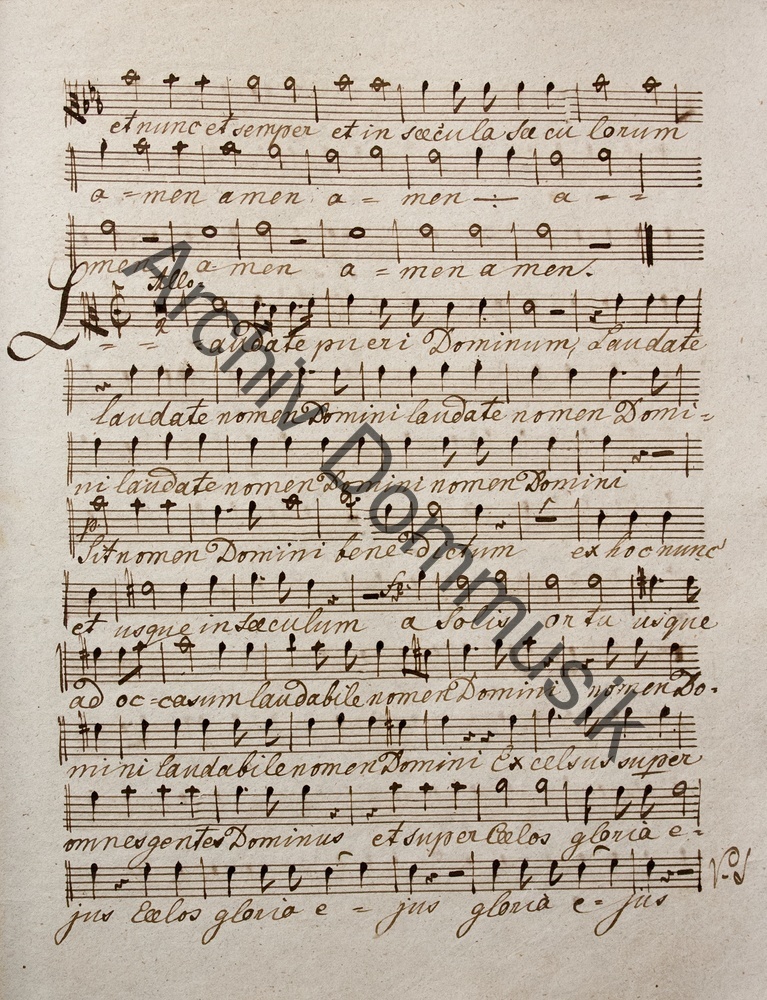 et nunc et semper et in sæcula sæ cu lorum
a = men amen a = men ÷ a = =
men a men a = men amen.
Allo.
= = Laudate pueri Dominum, Laudate
laudate nomen Domini laudate nomen Domi=
ni laudate nomen Domini nomen Domini
p.
Sit nomen Domini bene=dictum ex hoc nunc
et usque in sæculum a Solis ortu usque
ad oc=casum laudabile nomen Domini nomen Do=
mini laudabile nomen Domini Excelsus super
omnes gentes Dominus et super Cœlos gloria e=
jus Cœlos gloria e = jus gloria e= jus
Archiv Dommusik